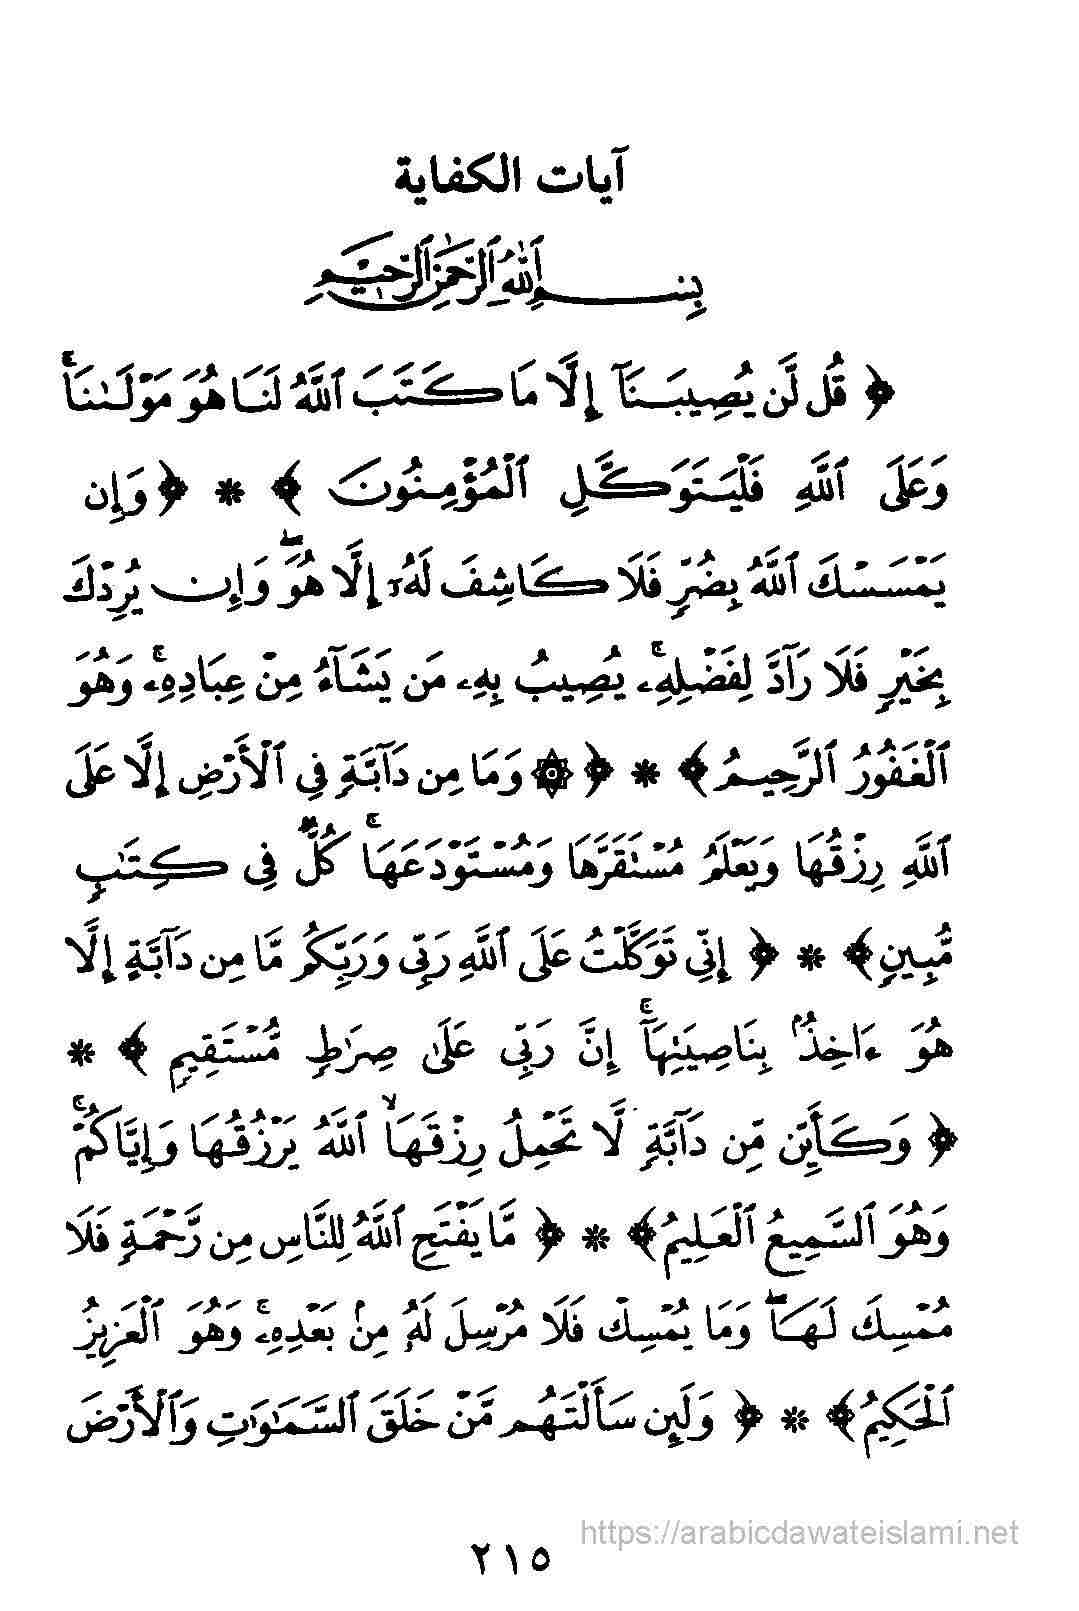 آيات الكفاية
بِسْمِ ٱللَّهِ ٱلرَّحْمَٰنِ ٱلرَّحِيمِ
﴿ قُل لَّن يُصِيبَنَآ إِلَّا مَا كَتَبَ ٱللَّهُ لَنَا هُوَ مَوْلَىٰنَاۚ
وَعَلَى ٱللَّهِ فَلْيَتَوَكَّلِ ٱلْمُؤْمِنُونَ ﴾ * ﴿ وَإِن
يَمْسَسْكَ ٱللَّهُ بِضُرٍّ فَلَا كَاشِفَ لَهُۥٓ إِلَّا هُوَۖ وَإِن يُرِدْكَ
بِخَيْرٍ فَلَا رَآدَّ لِفَضْلِهِۦۚ يُصِيبُ بِهِۦ مَن يَشَآءُ مِنْ عِبَادِهِۦۚ وَهُوَ
ٱلْغَفُورُ ٱلرَّحِيمُ ﴾ * ﴿ ۞ وَمَا مِن دَآبَّةٍ فِي ٱلْأَرْضِ إِلَّا عَلَى
ٱللَّهِ رِزْقُهَا وَيَعْلَمُ مُسْتَقَرَّهَا وَمُسْتَوْدَعَهَاۚ كُلٌّ فِى كِتَٰبٍ
مُّبِينٍ ﴾ * ﴿ إِنِّى تَوَكَّلْتُ عَلَى ٱللَّهِ رَبِّى وَرَبِّكُم مَّا مِن دَآبَّةٍ إِلَّا
هُوَ ءَاخِذٌۢ بِنَاصِيَتِهَآۚ إِنَّ رَبِّى عَلَىٰ صِرَٰطٍ مُّسْتَقِيمٍ ﴾ *
﴿ وَكَأَيِّن مِّن دَآبَّةٍ لَّا تَحْمِلُ رِزْقَهَاۙ ٱللَّهُ يَرْزُقُهَا وَإِيَّاكُمْۚ
وَهُوَ ٱلسَّمِيعُ ٱلْعَلِيمُ ﴾ * ﴿ مَّا يَفْتَحِ ٱللَّهُ لِلنَّاسِ مِن رَّحْمَةٍ فَلَا
مُمْسِكَ لَهَاۖ وَمَا يُمْسِكْ فَلَا مُرْسِلَ لَهُۥ مِنۢ بَعْدِهِۦۚ وَهُوَ ٱلْعَزِيزُ
ٱلْحَكِيمُ ﴾ * ﴿ وَلَئِن سَأَلْتَهُم مَّنْ خَلَقَ ٱلسَّمَٰوَٰتِ وَٱلْأَرْضَ
https://arabicdawateislami.net
٢١٥